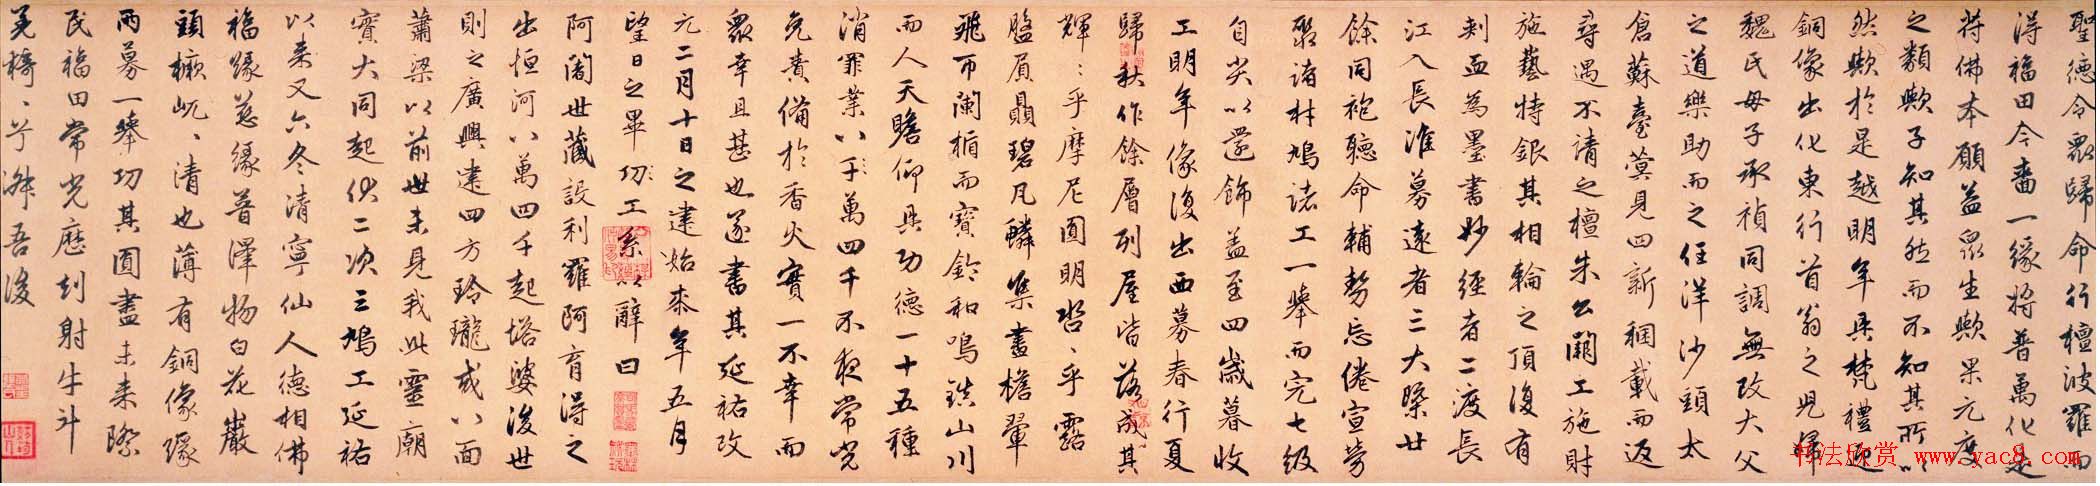 聖德令眾歸命行檀波羅而
得福田今嗇一緣將普萬化是
荷佛本願益眾生歟果元度
之類歟子知其然而不知其所以
然歟於是越明年具梵禮迎
銅像出化東行首翁之兒婦
魏氏母子承禎同調無改大父
之道樂助而之任洋沙頭太
倉蘇臺蓂見四新稇載而返
尋遇不請之檀朱公開工施財
施藝特銀其相輪之頂復有
刺血為墨書妙經者二渡長
江入長淮募遠者三大檠廿
餘同袍聽命輔勢忘倦宣勞
聚諸材鳩諸工一舉而完七級
自尖以還飾蓋至四歲暮收
工明年像復出西募春行夏
歸秋作餘層列屋皆落成其
輝輝乎摩尼圓明㳫㳫乎露
盤屓贔碧瓦鱗集畫檐翬
飛而闌楯而寶鈴和鳴鎮山川
而人天瞻仰具功德一十五種
消罪業八千萬四千不夜常光
免責備於香火實一不幸而
眾幸且甚也遂書其延祐改
元二月十日之建始泰年五月
望日之畢功工系以辭曰
阿闍世藏設利羅阿育得之
出恒河八萬四千起塔婆後世
則之廣興建四方玲瓏或八面
蕭梁以前世未見我此靈廟
實大同起伏二次三鳩工延祐
以來又六冬清寧仙人德相佛
福緣慈緣普澤物白花巖
頭橛屼屼清也薄有銅像緣
兩募一舉功其圓盡未來際
民福田常光歷刧射牛斗
美猗猗兮昇吾後
书法欣赏 www.yac8.com